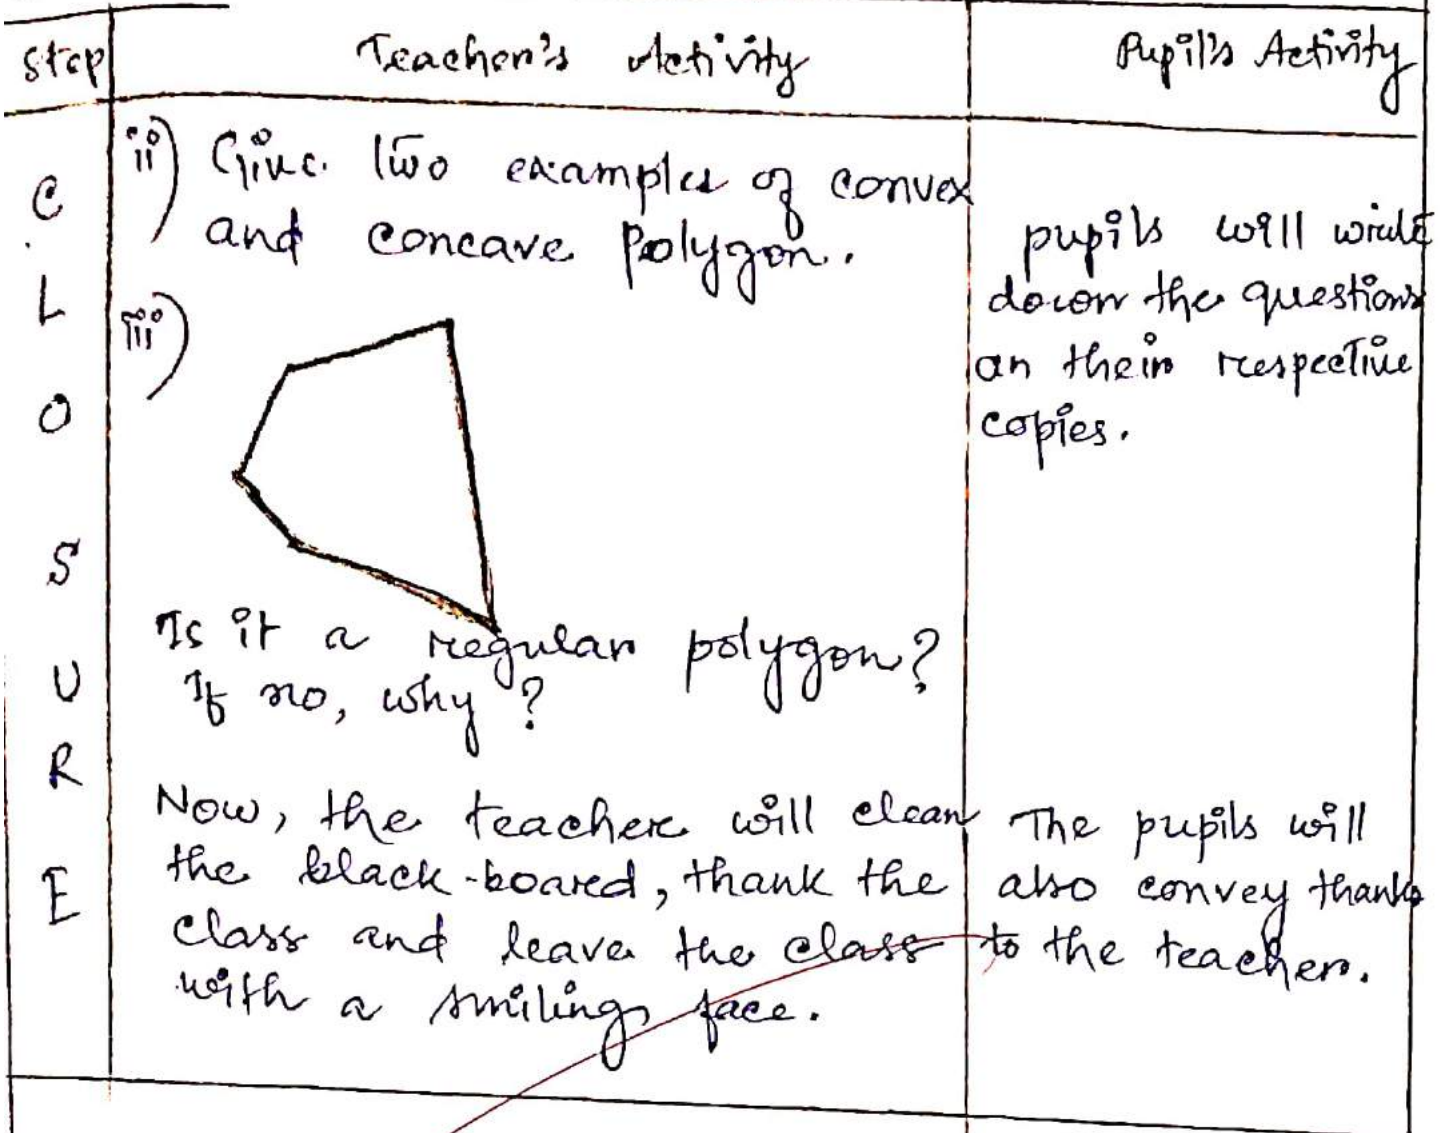 Step Teacher's Activity Pupil's Activity
C
L
O
S
U
R
E
ii) Give two examples of convex
and concave polygon.
iii)
Is it a regular polygon?
If no, why?
Now, the teacher will clean
the black-board, thank the
class and leave the class
with a smiling face.
pupils will write
down the questions
on their respective
copies.
The pupils will
also convey thanks
to the teacher.